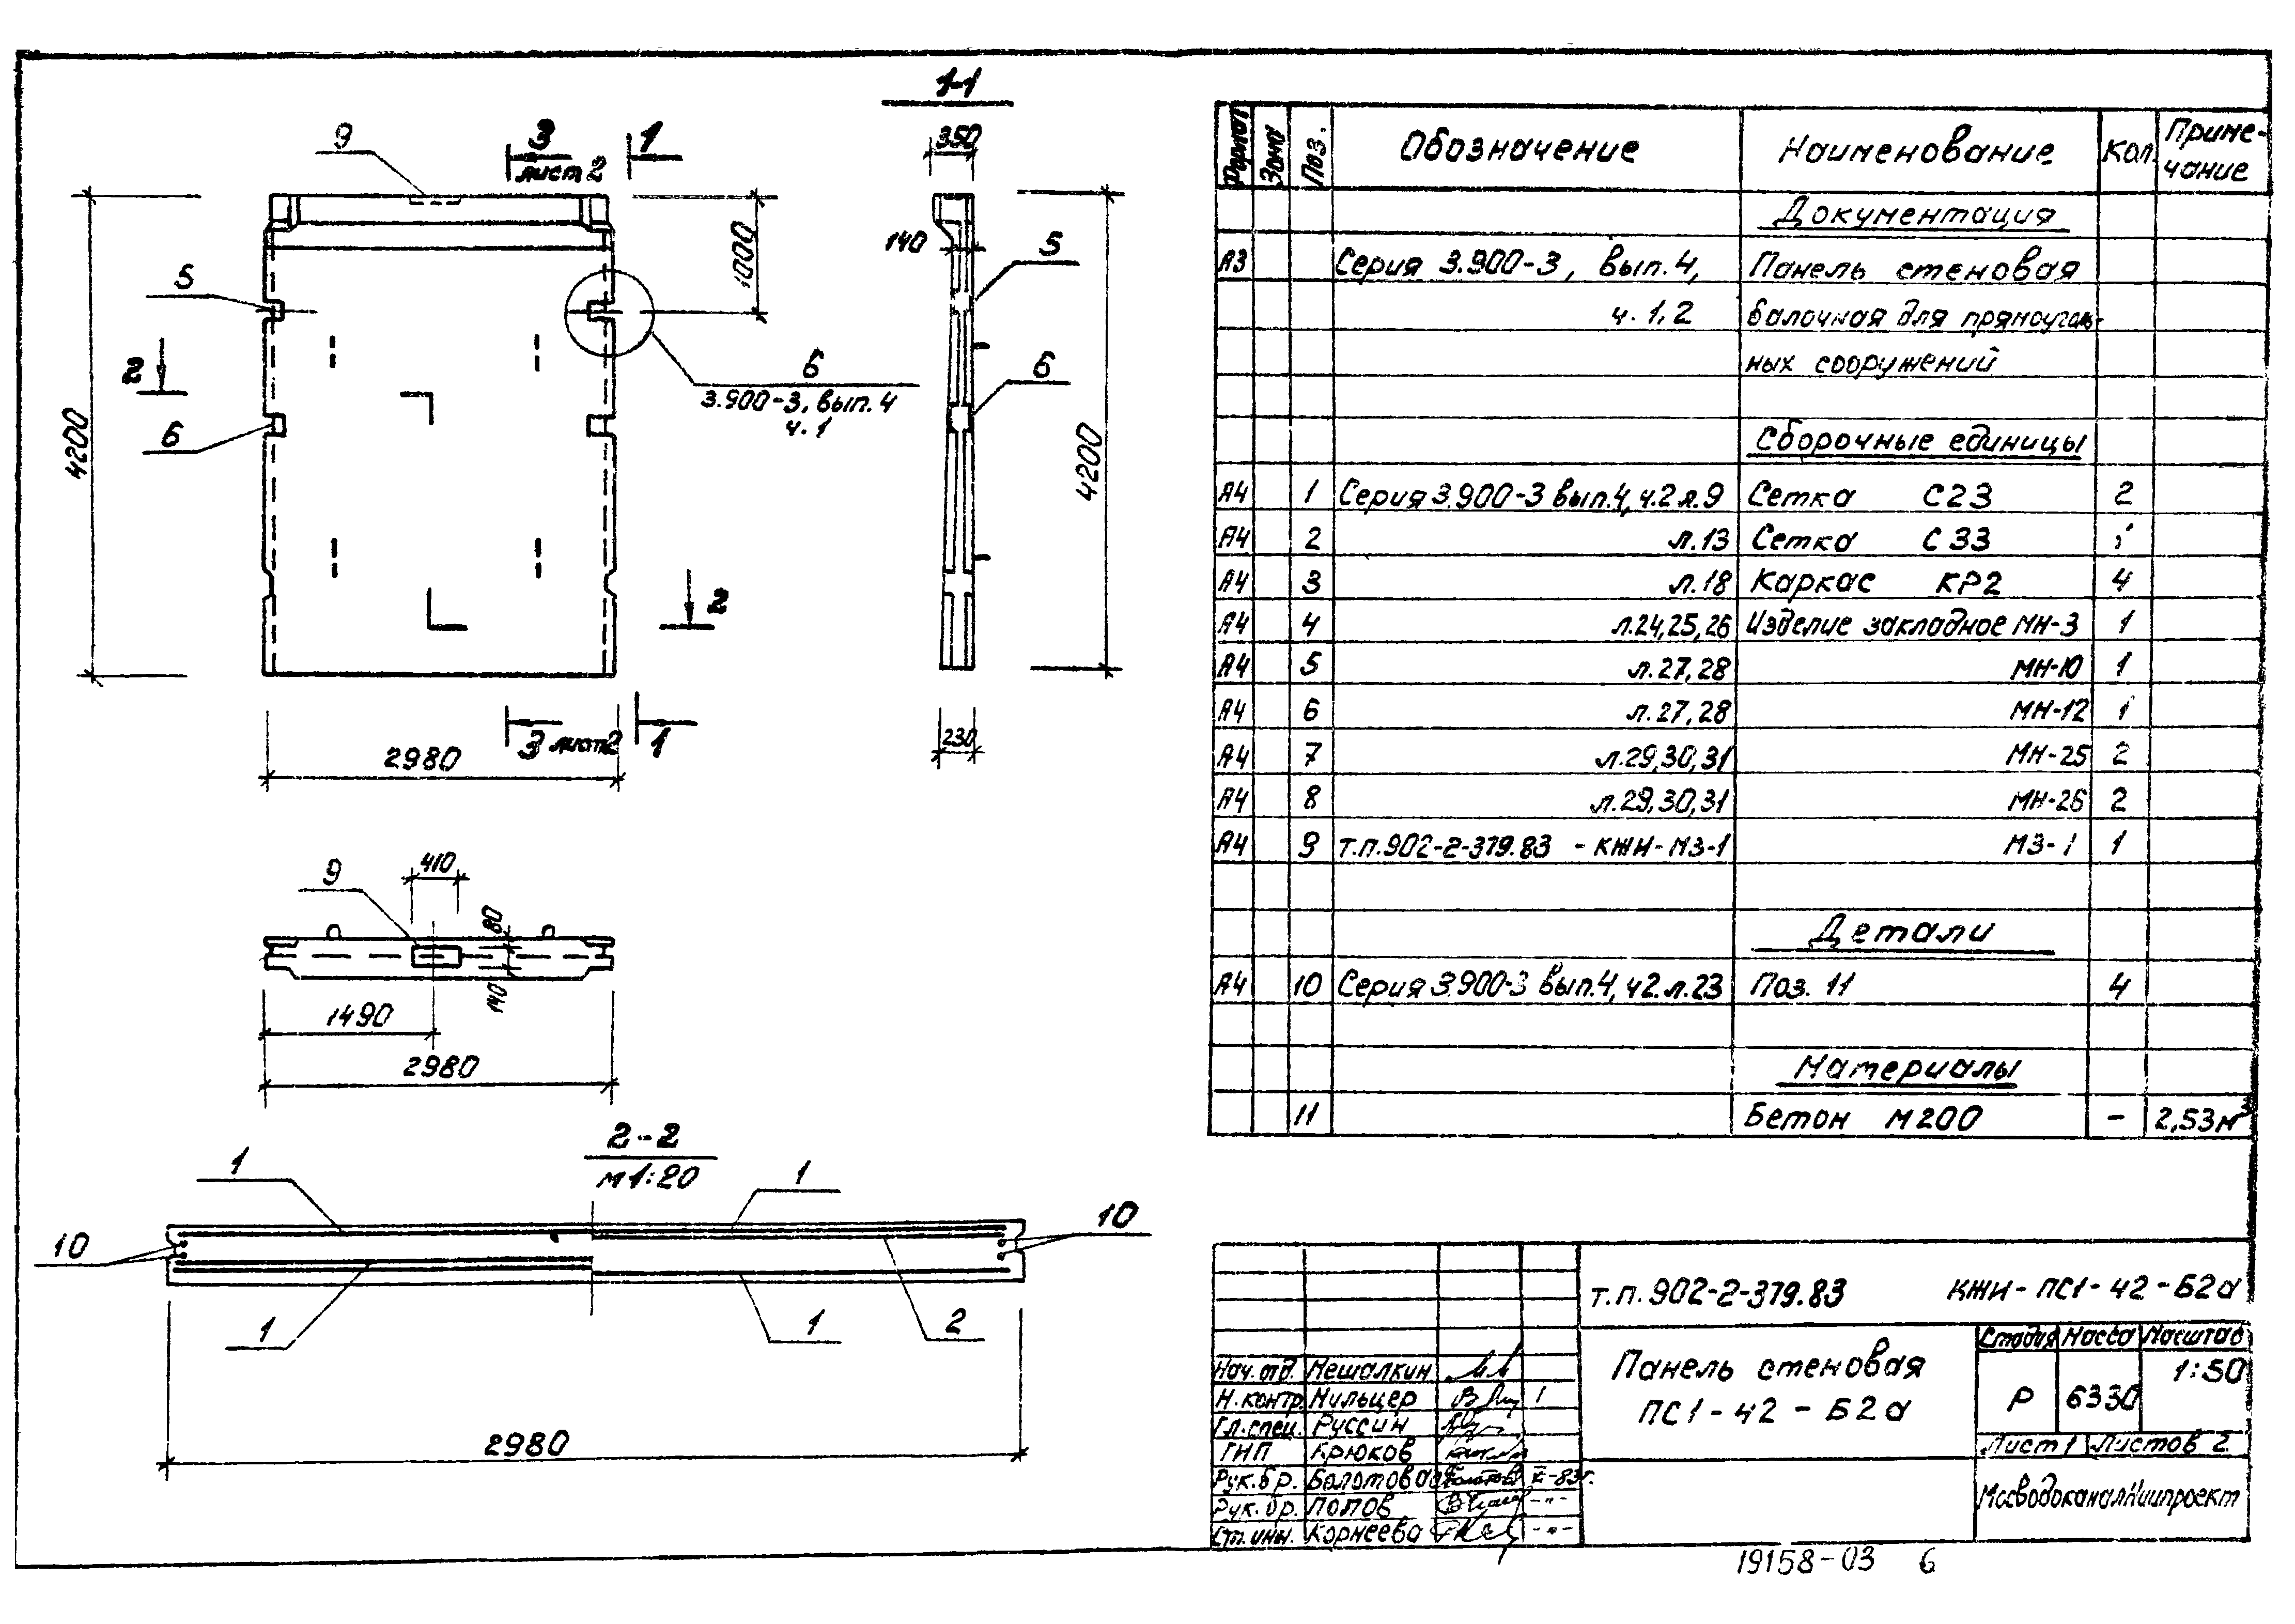 1-1
9
3
лист 2
1
350
4200
1000
140
5
5
2
6
3.900-3, вып. 4
ч. 1
6
6
4200
4200
2
3 лист2
1
2980
230
9
410
80
140
1490
2980
2-2
м 1:20
1
1
10
10
1
1
2
2980
Формат Зона Поз. Обозначение Наименование Кол. Приме-
чание
Документация
А3 Серия 3.900-3, вып. 4, Панель стеновая
ч. 1, 2 балочная для прямоуголь-
ных сооружений
Сборочные единицы
А4 1 Серия 3.900-3 вып.4, ч.2 л.9 Сетка С23 2
А4 2 л.13 Сетка С33
А4 3 л.18 Каркас КР2 4
А4 4 л.24,25,26 Изделие закладное МН-3 1
А4 5 л.27,28 МН-10 1
А4 6 л.27,28 МН-12 1
А4 7 л.29,30,31 МН-25 2
А4 8 л.29,30,31 МН-26 2
А4 9 т.п.902-2-379.83 - КЖИ-МЗ-1 МЗ-1 1
Детали
А4 10 Серия 3.900-3 вып.4, ч2.л.23 Поз. 11 4
Материалы
11 Бетон М200 - 2,53м³
т.п.902-2-379.83 КЖИ-ПС1-42-Б2а
Панель стеновая
ПС1-42-Б2а
Стадия Масса Масштаб
Р 6330 1:50
Лист 1 Листов 2
МосводоканалНиипроект
Нач. отд. Мешалкин
Н.контр. Мильцер
Гл.спец. Руссин
ГИП Крюков
Рук.бр. Болотова -83г.
Рук.бр. Попов -"-
Ст.инж. Корнеева -"-
19158-03 6